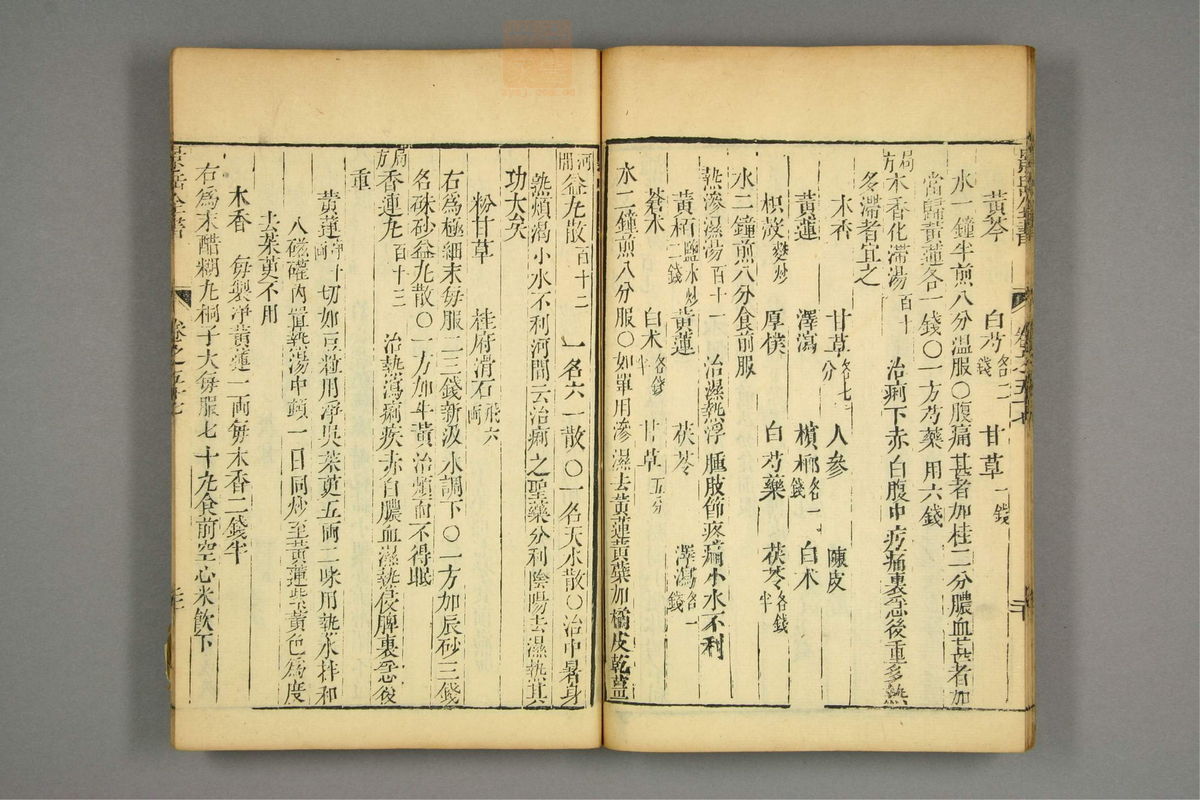 黃芩 白芍各二錢 甘草一錢
水一鐘半煎八分溫服〇腹痛甚者加桂二分膿血甚者加
當歸黃蓮各一錢〇一方芍藥用六錢
局方木香化滯湯百十 治痢下赤白腹中㽲痛裏急後重多熱
多滯者宜之
木香 甘草各七分 人參 陳皮
黃蓮 澤瀉 檳榔各一錢 白朮
枳殼麩炒 厚樸 白芍藥 茯苓各錢半
水二鐘煎八分食前服
熱滲濕湯百十一 治濕熱浮腫肢節疼痛小水不利
黃栢鹽水炒二錢 黃蓮 茯苓 澤瀉各一錢
蒼朮 白朮各錢半 甘草五分
水二鐘煎八分服〇如單用滲濕去黃蓮黃蘗加橘皮乾薑
河間益元散百十二 一名六一散〇一名天水散〇治中暑身
熱煩渴小水不利河間云治痢之聖藥分利陰陽去濕熱其
功大矣
粉甘草 桂府滑石飛六兩
右爲極細末每服二三錢新汲水調下〇一方加辰砂三錢
名硃砂益元散〇一方加牛黃治煩而不得眠
局方香連丸百十三 治熱瀉痢疾赤白膿血濕熱侵脾裏急後
重
黃蓮淨十兩切如豆粒用淨吳茱萸五兩二味用熱水拌和
入磁礶內置熱湯中頓一日同炒至黃蓮紫黃色爲度
去茱萸不用
木香 每製淨黃蓮一兩每木香二錢半
右爲末醋糊丸桐子大每服七十丸食前空心米飲下